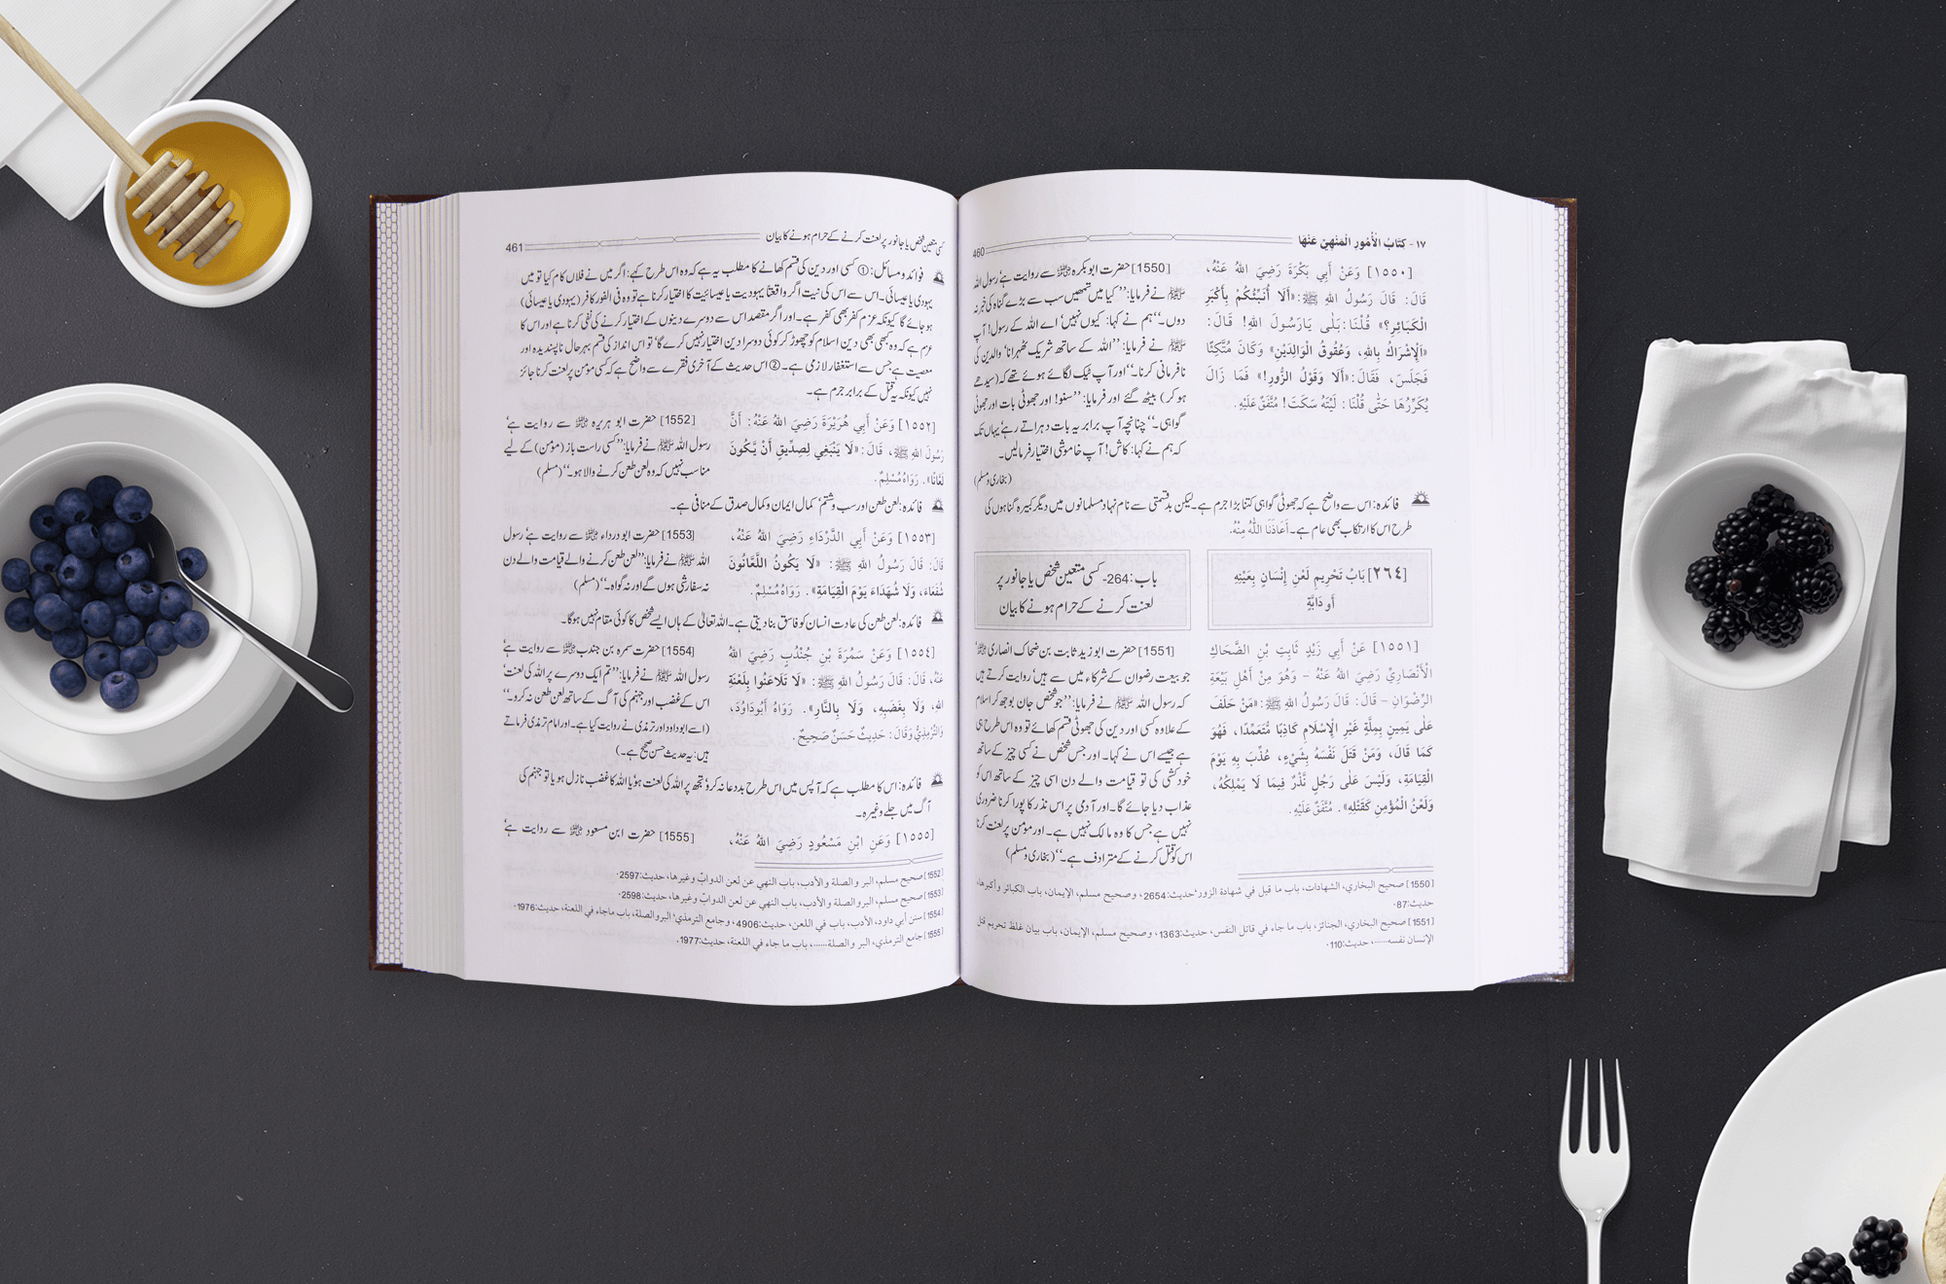 ١٧ - كِتَابُ الْأُمُورِ الْمَنْهِيِّ عَنْهَا
460
[١٥٥٠] وَعَنْ أَبِي بَكْرَةَ رَضِيَ اللهُ عَنْهُ،
قَالَ: قَالَ رَسُولُ اللهِ ﷺ: «أَلَا أُنَبِّئُكُمْ بِأَكْبَرِ
الْكَبَائِرِ؟» قُلْنَا: بَلٰى يَارَسُولَ اللهِ! قَالَ:
«اَلْإِشْرَاكُ بِاللهِ، وَعُقُوقُ الْوَالِدَيْنِ» وَكَانَ مُتَّكِئًا
فَجَلَسَ، فَقَالَ: «أَلَا وَقَوْلُ الزُّورِ!» فَمَا زَالَ
يُكَرِّرُهَا حَتّٰى قُلْنَا: لَيْتَهُ سَكَتَ! مُتَّفَقٌ عَلَيْهِ.
[1550] حضرت ابوبکرہ ﷛ سے روایت ہے' رسول اللہ
ﷺ نے فرمایا: ''کیا میں تمھیں سب سے بڑے گناہ کی خبر نہ
دوں۔'' ہم نے کہا: کیوں نہیں' اے اللہ کے رسول! آپ
ﷺ نے فرمایا: ''اللہ کے ساتھ شریک ٹھہرانا' والدین کی
نافرمانی کرنا۔'' اور آپ ٹیک لگائے ہوئے تھے کہ (سیدھے
ہو کر) بیٹھ گئے اور فرمایا: ''سنو! اور جھوٹی بات اور جھوٹی
گواہی۔'' چنانچہ آپ برابر یہ بات دہراتے رہے' یہاں تک
کہ ہم نے کہا: کاش! آپ خاموشی اختیار فرمالیں۔
(بخاری و مسلم)
فائدہ: اس سے واضح ہے کہ جھوٹی گواہی کتنا بڑا جرم ہے۔ لیکن بدقسمتی سے نام نہاد مسلمانوں میں دیگر کبیرہ گناہوں کی
طرح اس کا ارتکاب بھی عام ہے۔ أَعَاذَنَا اللّٰهُ مِنْهُ.
[٢٦٤] بَابُ تَحْرِيمِ لَعْنِ إِنْسَانٍ بِعَيْنِهِ
أَو دَابَّةٍ
باب: 264- کسی متعین شخص یا جانور پر
لعنت کرنے کے حرام ہونے کا بیان
[١٥٥١] عَنْ أَبِي زَيْدٍ ثَابِتِ بْنِ الضَّحَّاكِ
الْأَنْصَارِيِّ رَضِيَ اللهُ عَنْهُ – وَهُوَ مِنْ أَهْلِ بَيْعَةِ
الرِّضْوَانِ – قَالَ: قَالَ رَسُولُ اللهِ ﷺ: «مَنْ حَلَفَ
عَلٰى يَمِينٍ بِمِلَّةٍ غَيْرِ الْإِسْلَامِ كَاذِبًا مُتَعَمِّدًا، فَهُوَ
كَمَا قَالَ، وَمَنْ قَتَلَ نَفْسَهُ بِشَيْءٍ، عُذِّبَ بِهِ يَوْمَ
الْقِيَامَةِ، وَلَيْسَ عَلٰى رَجُلٍ نَذْرٌ فِيمَا لَا يَمْلِكُهُ،
وَلَعْنُ الْمُؤْمِنِ كَقَتْلِهِ». مُتَّفَقٌ عَلَيْهِ.
[1551] حضرت ابو زید ثابت بن ضحاک انصاری ﷛'
جو بیعت رضوان کے شرکاء میں سے ہیں' روایت کرتے ہیں
کہ رسول اللہ ﷺ نے فرمایا: ''جو شخص جان بوجھ کر اسلام
کے علاوہ کسی اور دین کی جھوٹی قسم کھائے تو وہ اس طرح ہی
ہے جیسے اس نے کہا۔ اور جس شخص نے کسی چیز کے ساتھ
خودکشی کی تو قیامت والے دن اسی چیز کے ساتھ اس کو
عذاب دیا جائے گا۔ اور آدمی پر اس نذر کا پورا کرنا ضروری
نہیں ہے جس کا وہ مالک نہیں ہے۔ اور مومن پر لعنت کرنا
اس کو قتل کرنے کے مترادف ہے۔'' (بخاری و مسلم)
[1550] صحيح البخاري، الشهادات، باب ما قيل في شهادة الزور، حديث:2654، وصحيح مسلم، الإيمان، باب الكبائر وأكبرها،
حديث:87.
[1551] صحيح البخاري، الجنائز، باب ما جاء في قاتل النفس، حديث:1363، وصحيح مسلم، الإيمان، باب بيان غلظ تحريم قتل
الإنسان نفسه.....، حديث:110.
کسی متعین شخص یا جانور پر لعنت کرنے کے حرام ہونے کا بیان
461
فوائد و مسائل: ① کسی اور دین کی قسم کھانے کا مطلب یہ ہے کہ وہ اس طرح کہے: اگر میں نے فلاں کام کیا تو میں
یہودی یا عیسائی۔ اس سے اس کی نیت اگر واقعتاً یہودیت یا عیسائیت کا اختیار کرنا ہے تو وہ فی الفور کافر (یہودی یا عیسائی)
ہو جائے گا کیونکہ عزم کفر بھی کفر ہے۔ اور اگر مقصد اس سے دوسرے دینوں کے اختیار کرنے کی نفی کرنا ہے اور اس کا
عزم ہے کہ وہ کبھی بھی دین اسلام کو چھوڑ کر کوئی دوسرا دین اختیار نہیں کرے گا' تو اس انداز کی قسم بہرحال ناپسندیدہ اور
معصیت ہے جس سے استغفار لازمی ہے۔ ② اس حدیث کے آخری فقرے سے واضح ہے کہ کسی مومن پر لعنت کرنا جائز
نہیں کیونکہ یہ قتل کے برابر جرم ہے۔
[١٥٥٢] وَعَنْ أَبِي هُرَيْرَةَ رَضِيَ اللهُ عَنْهُ: أَنَّ
رَسُولَ اللهِ ﷺ، قَالَ: «لَا يَنْبَغِي لِصِدِّيقٍ أَنْ يَّكُونَ
لَعَّانًا». رَوَاهُ مُسْلِمٌ.
[1552] حضرت ابو ہریرہ ﷛ سے روایت ہے'
رسول اللہ ﷺ نے فرمایا: ''کسی راست باز (مؤمن) کے لیے
مناسب نہیں کہ وہ لعن طعن کرنے والا ہو۔'' (مسلم)
فائدہ: لعن طعن اور سب و شتم' کمال ایمان و کمال صدق کے منافی ہے۔
[١٥٥٣] وَعَنْ أَبِي الدَّرْدَاءِ رَضِيَ اللهُ عَنْهُ،
قَالَ: قَالَ رَسُولُ اللهِ ﷺ: «لَا يَكُونُ اللَّعَّانُونَ
شُفَعَاءَ، وَلَا شُهَدَاءَ يَوْمَ الْقِيَامَةِ». رَوَاهُ مُسْلِمٌ.
[1553] حضرت ابو درداء ﷛ سے روایت ہے' رسول
اللہ ﷺ نے فرمایا: ''لعن طعن کرنے والے قیامت والے دن
نہ سفارشی ہوں گے اور نہ گواہ۔'' (مسلم)
فائدہ: لعن طعن کی عادت انسان کو فاسق بنا دیتی ہے۔ اللہ تعالیٰ کے ہاں ایسے شخص کا کوئی مقام نہیں ہوگا۔
[١٥٥٤] وَعَنْ سَمُرَةَ بْنِ جُنْدُبٍ رَضِيَ اللهُ
عَنْهُ، قَالَ: قَالَ رَسُولُ اللهِ ﷺ: «لَا تَلَاعَنُوا بِلَعْنَةِ
اللهِ، وَلَا بِغَضَبِهِ، وَلَا بِالنَّارِ». رَوَاهُ أَبُودَاوُدَ،
وَالتِّرْمِذِيُّ وَقَالَ: حَدِيثٌ حَسَنٌ صَحِيحٌ.
[1554] حضرت سمرہ بن جندب ﷛ سے روایت ہے'
رسول اللہ ﷺ نے فرمایا: ''تم ایک دوسرے پر اللہ کی لعنت'
اس کے غضب اور جہنم کی آگ کے ساتھ لعن طعن نہ کرو۔''
(اسے ابوداود اور ترمذی نے روایت کیا ہے۔ اور امام ترمذی فرماتے
ہیں: یہ حدیث حسن صحیح ہے۔)
فائدہ: اس کا مطلب ہے کہ آپس میں اس طرح بددعا نہ کرو' تجھ پر اللہ کی لعنت ہو' یا اللہ کا غضب نازل ہو یا تو جہنم کی
آگ میں جلے وغیرہ۔
[١٥٥٥] وَعَنِ ابْنِ مَسْعُودٍ رَضِيَ اللهُ عَنْهُ،
[1555] حضرت ابن مسعود ﷛ سے روایت ہے'
[1552] صحيح مسلم، البر والصلة والأدب، باب النهي عن لعن الدوابّ وغيرها، حديث:2597.
[1553] صحيح مسلم، البر والصلة والأدب، باب النهي عن لعن الدوابّ وغيرها، حديث:2598.
[1554] سنن أبي داود، الأدب، باب في اللعن، حديث:4906، وجامع الترمذي، البر والصلة، باب ماجاء في اللعنة، حديث:1976.
[1555] جامع الترمذي، البر والصلة.....، باب ما جاء في اللعنة، حديث:1977.